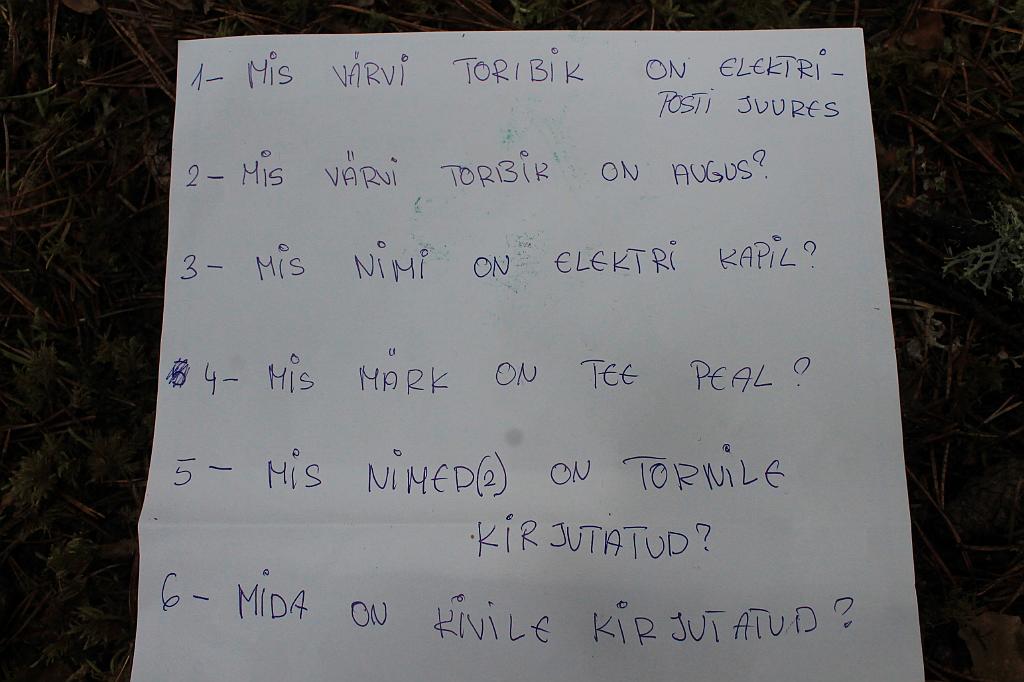 1- MIS VÄRVI TORIBIK ON ELEKTRI-
POSTI JUURES
2- MIS VÄRVI TORBIK ON AUGUS?
3- MIS NIMI ON ELEKTRI KAPIL?
4- MIS MÄRK ON TEE PEAL?
5- MIS NIMED(2) ON TORNILE
KIRJUTATUD?
6- MIDA ON KIVILE KIRJUTATUD?